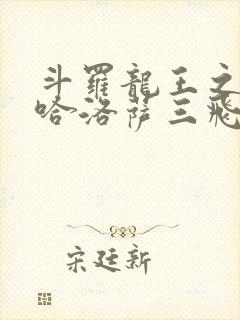 斗羅龍王之
哈洛薩三飛
宋廷新